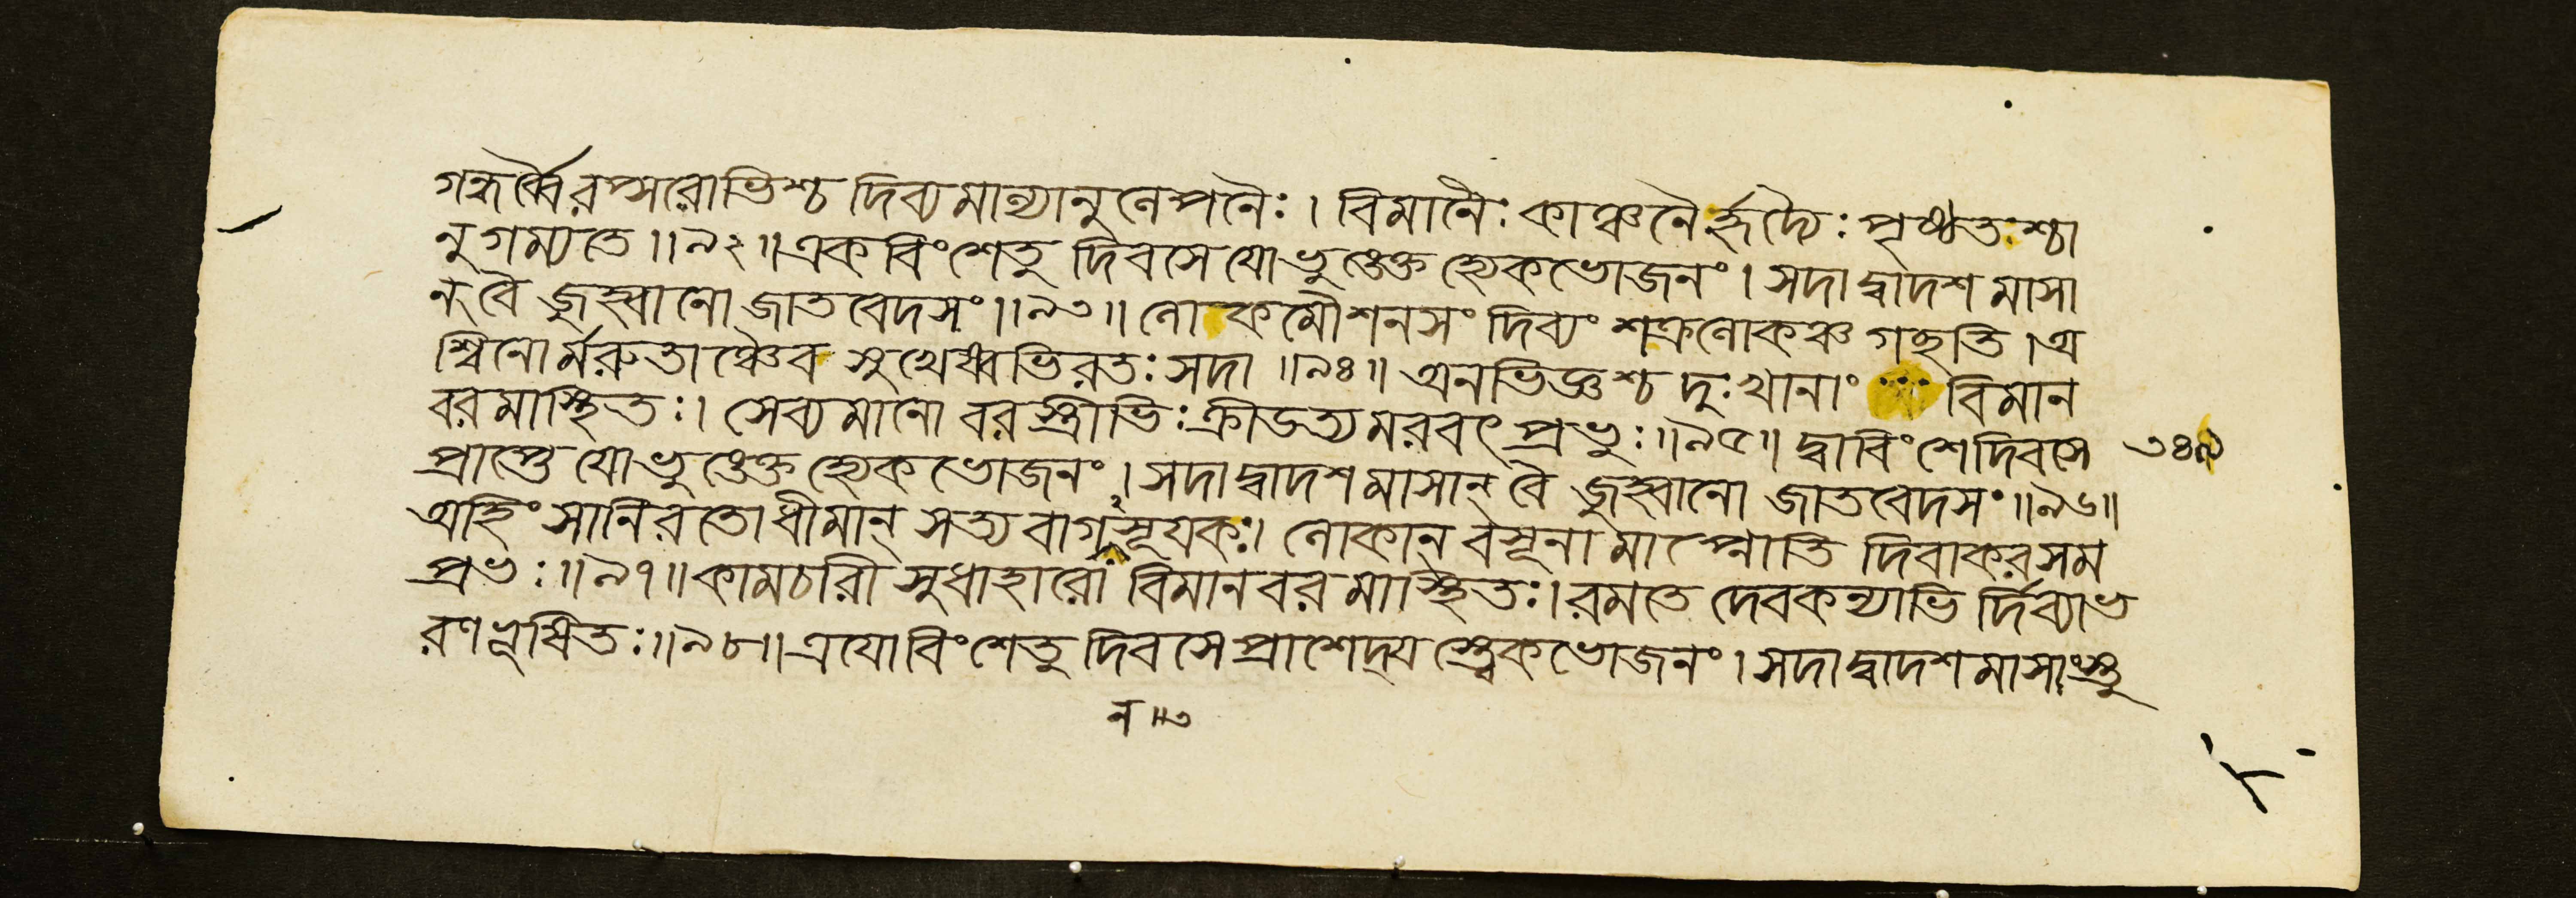 গন্ধর্ব্বৈরপ্সরোভিশ্চ দিব্যমাল্যানুলেপনৈঃ। বিমানৈঃ কাঞ্চনৈর্হৃদ্যৈঃ পৃষ্ঠতঃশ্চা
নুগম্যতে॥৯২॥একবিংশেতু দিবসে যোভুঙেক্ত হ্যেকভোজনং। সদা দ্বাদশ মাসা
ন্ বৈ জুহ্বানো জাতবেদসং॥৯৩॥ লোকমৌশনসং দিব্যং শক্রলোকঞ্চ গচ্ছতি।অ
শ্বিনোর্মরুতাঞ্চৈব সুখেষ্বভিরতঃ সদা॥৯৪॥ অনভিজ্ঞশ্চ দুঃখানাং বিমান
বরমাস্থিতঃ। সেব্যমানো বরস্ত্রীভিঃ ক্রীডত্যমরবৎ প্রভুঃ॥৯৫॥ দ্বাবিংশেদিবসে ৩৪৯
প্রাপ্তে যোভুঙেক্ত হ্যেকভোজনং। সদাদ্বাদশমাসান্ বৈ জুহ্বানো জাতবেদসং॥৯৬॥
অহিংসানিরতোধীমান্ সত্যবাগসূয়কঃ। লোকান্ বসূনামাপ্নোতি দিবাকরসম
প্রভঃ॥৯৭॥কামচারী সুধাহারো বিমানবরমাস্থিতঃ।রমতে দেবকন্যাভির্দিব্যাভ
রণভূষিতঃ॥৯৮॥ত্রয়োবিংশেতু দিবসে প্রাশেদ্যস্ত্বেকভোজনং। সদাদ্বাদশমাসাংস্তু
ন॥৩